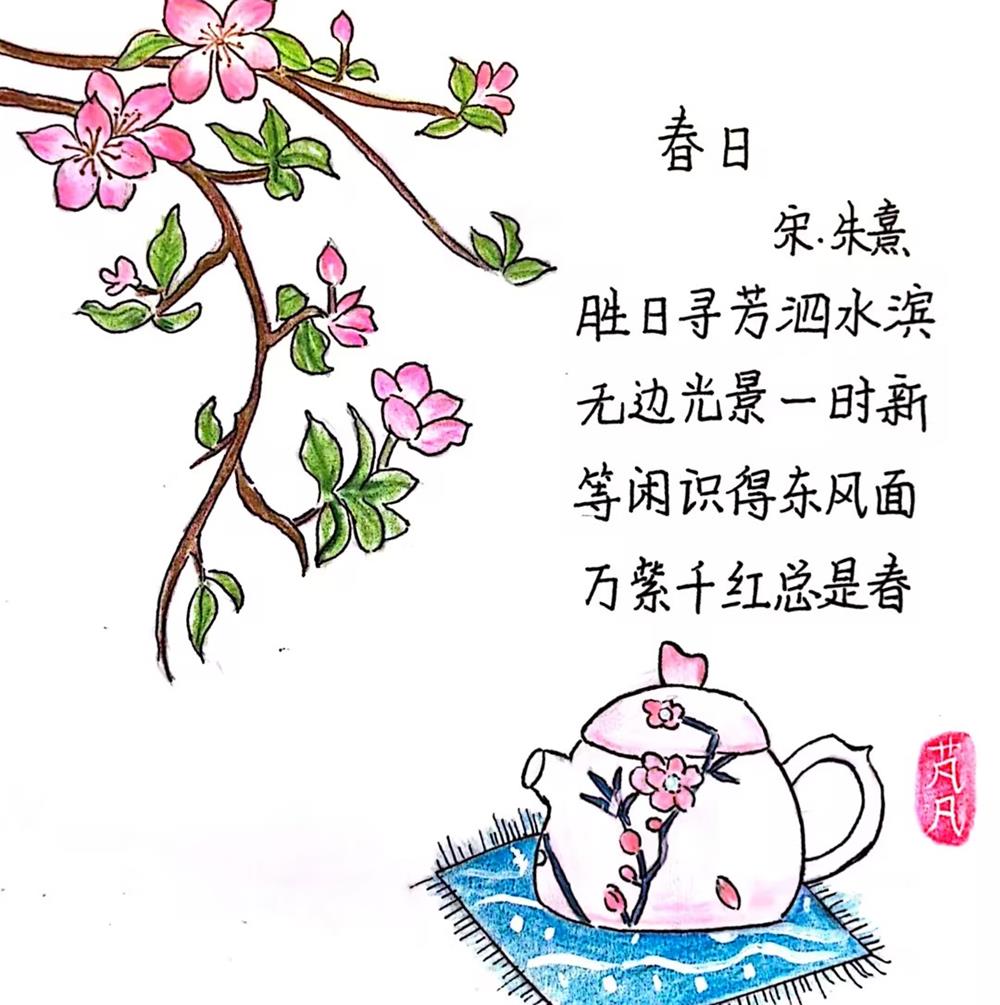 春日
宋.朱熹
胜日寻芳泗水滨
无边光景一时新
等闲识得东风面
万紫千红总是春
芃凡